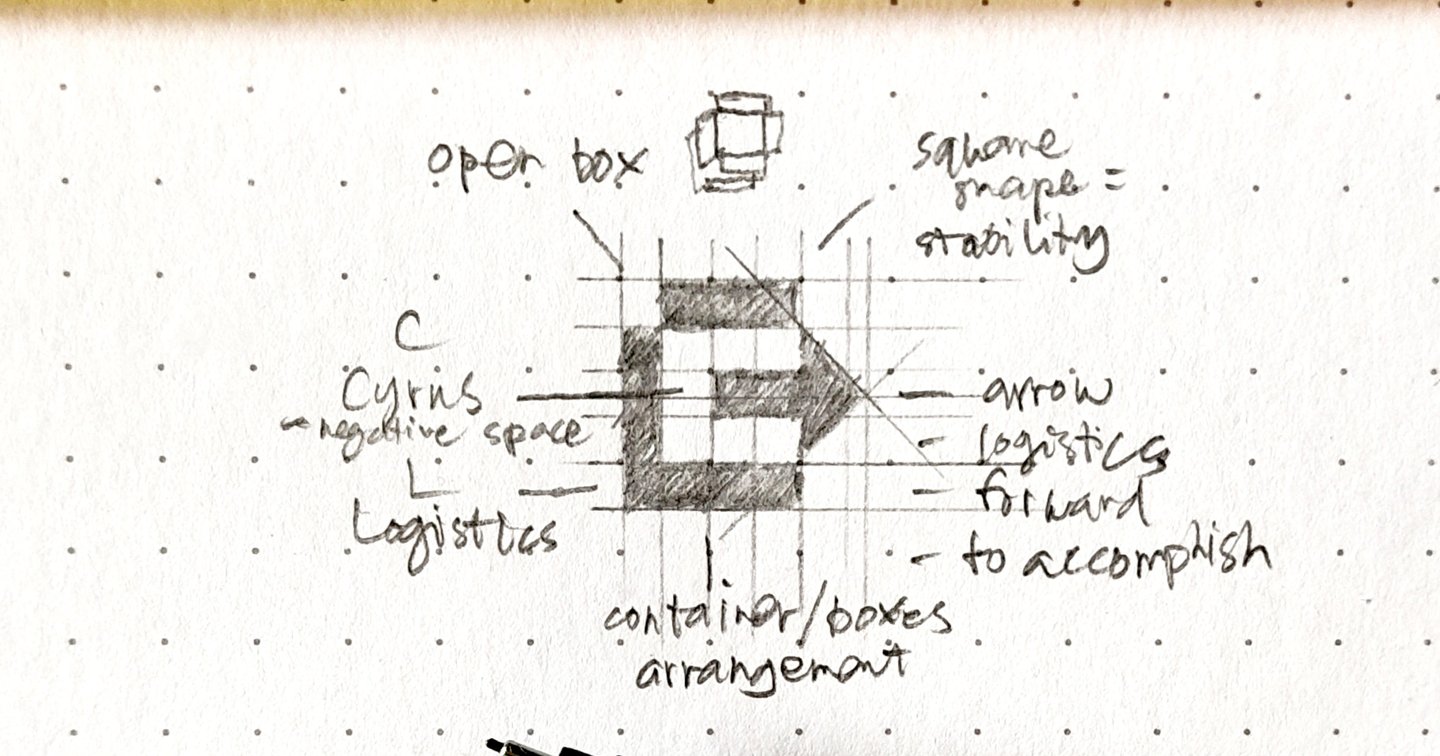 open box
square
shape =
stability
C
Cyrus
- negative space
L
Logistics
- arrow
- logistics
- forward
- to accomplish
container/boxes
arrangement